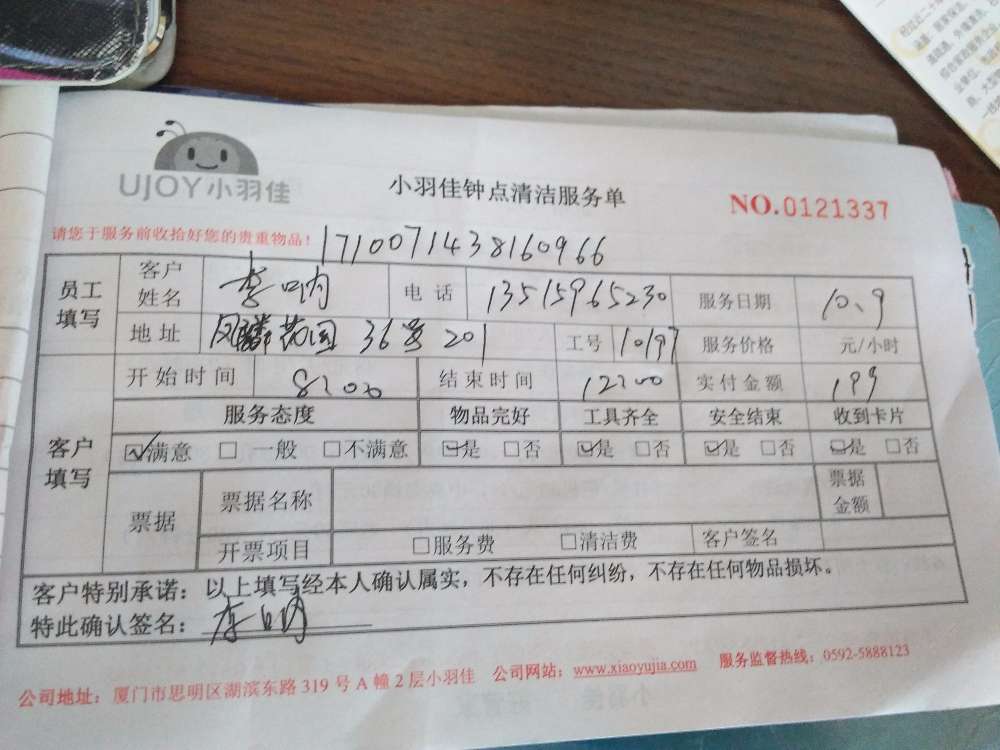 UJOY小羽佳
小羽佳钟点清洁服务单
NO.0121337
请您于服务前收拾好您的贵重物品！
1710071438160966
员工填写 客户姓名 李 电话 13515965230 服务日期 10.9
地址 凤麟苑园 36号 201 工号 10197 服务价格 元/小时
客户填写 开始时间 8:00 结束时间 12:00 实付金额 199
服务态度 物品完好 工具齐全 安全结束 收到卡片
☑满意 □一般 □不满意 ☑是 □否 ☑是 □否 ☑是 □否 ☑是 □否
票据 票据名称 票据金额
开票项目 □服务费 □清洁费 客户签名
客户特别承诺：以上填写经本人确认属实，不存在任何纠纷，不存在任何物品损坏。
特此确认签名：
公司地址：厦门市思明区湖滨东路 319 号 A 幢 2 层小羽佳 公司网站：www.xiaoyujia.com 服务监督热线：0592-5888123